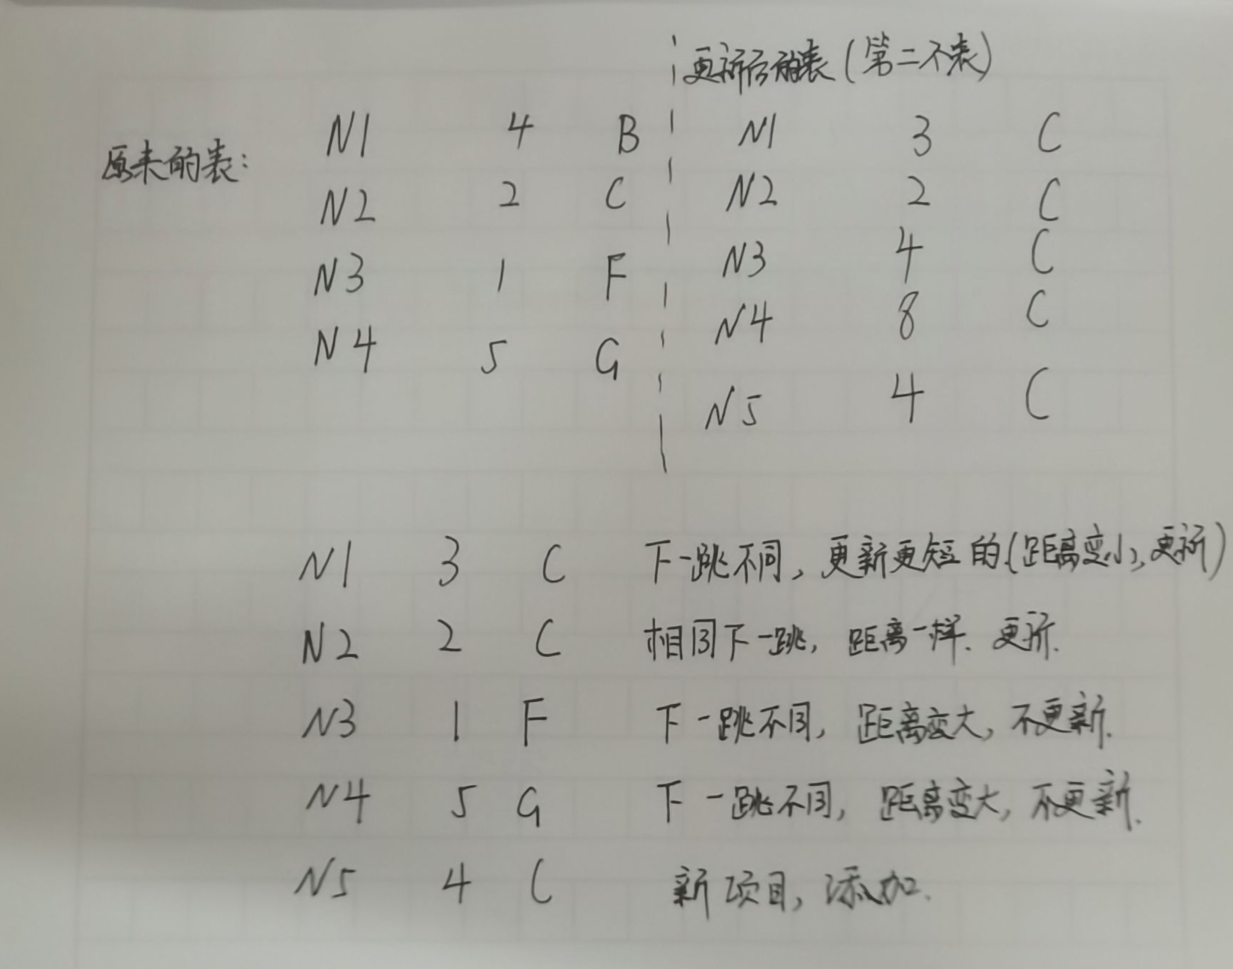 更新后的表(第二个表)
原来的表:
N1 4 B N1 3 C
N2 2 C N2 2 C
N3 1 F N3 4 C
N4 5 G N4 8 C
N5 4 C
N1 3 C 下一跳不同,更新更短的(距离变小,更新)
N2 2 C 相同下一跳,距离一样.更新.
N3 1 F 下一跳不同,距离变大,不更新.
N4 5 G 下一跳不同,距离变大,不更新.
N5 4 C 新项目,添加.